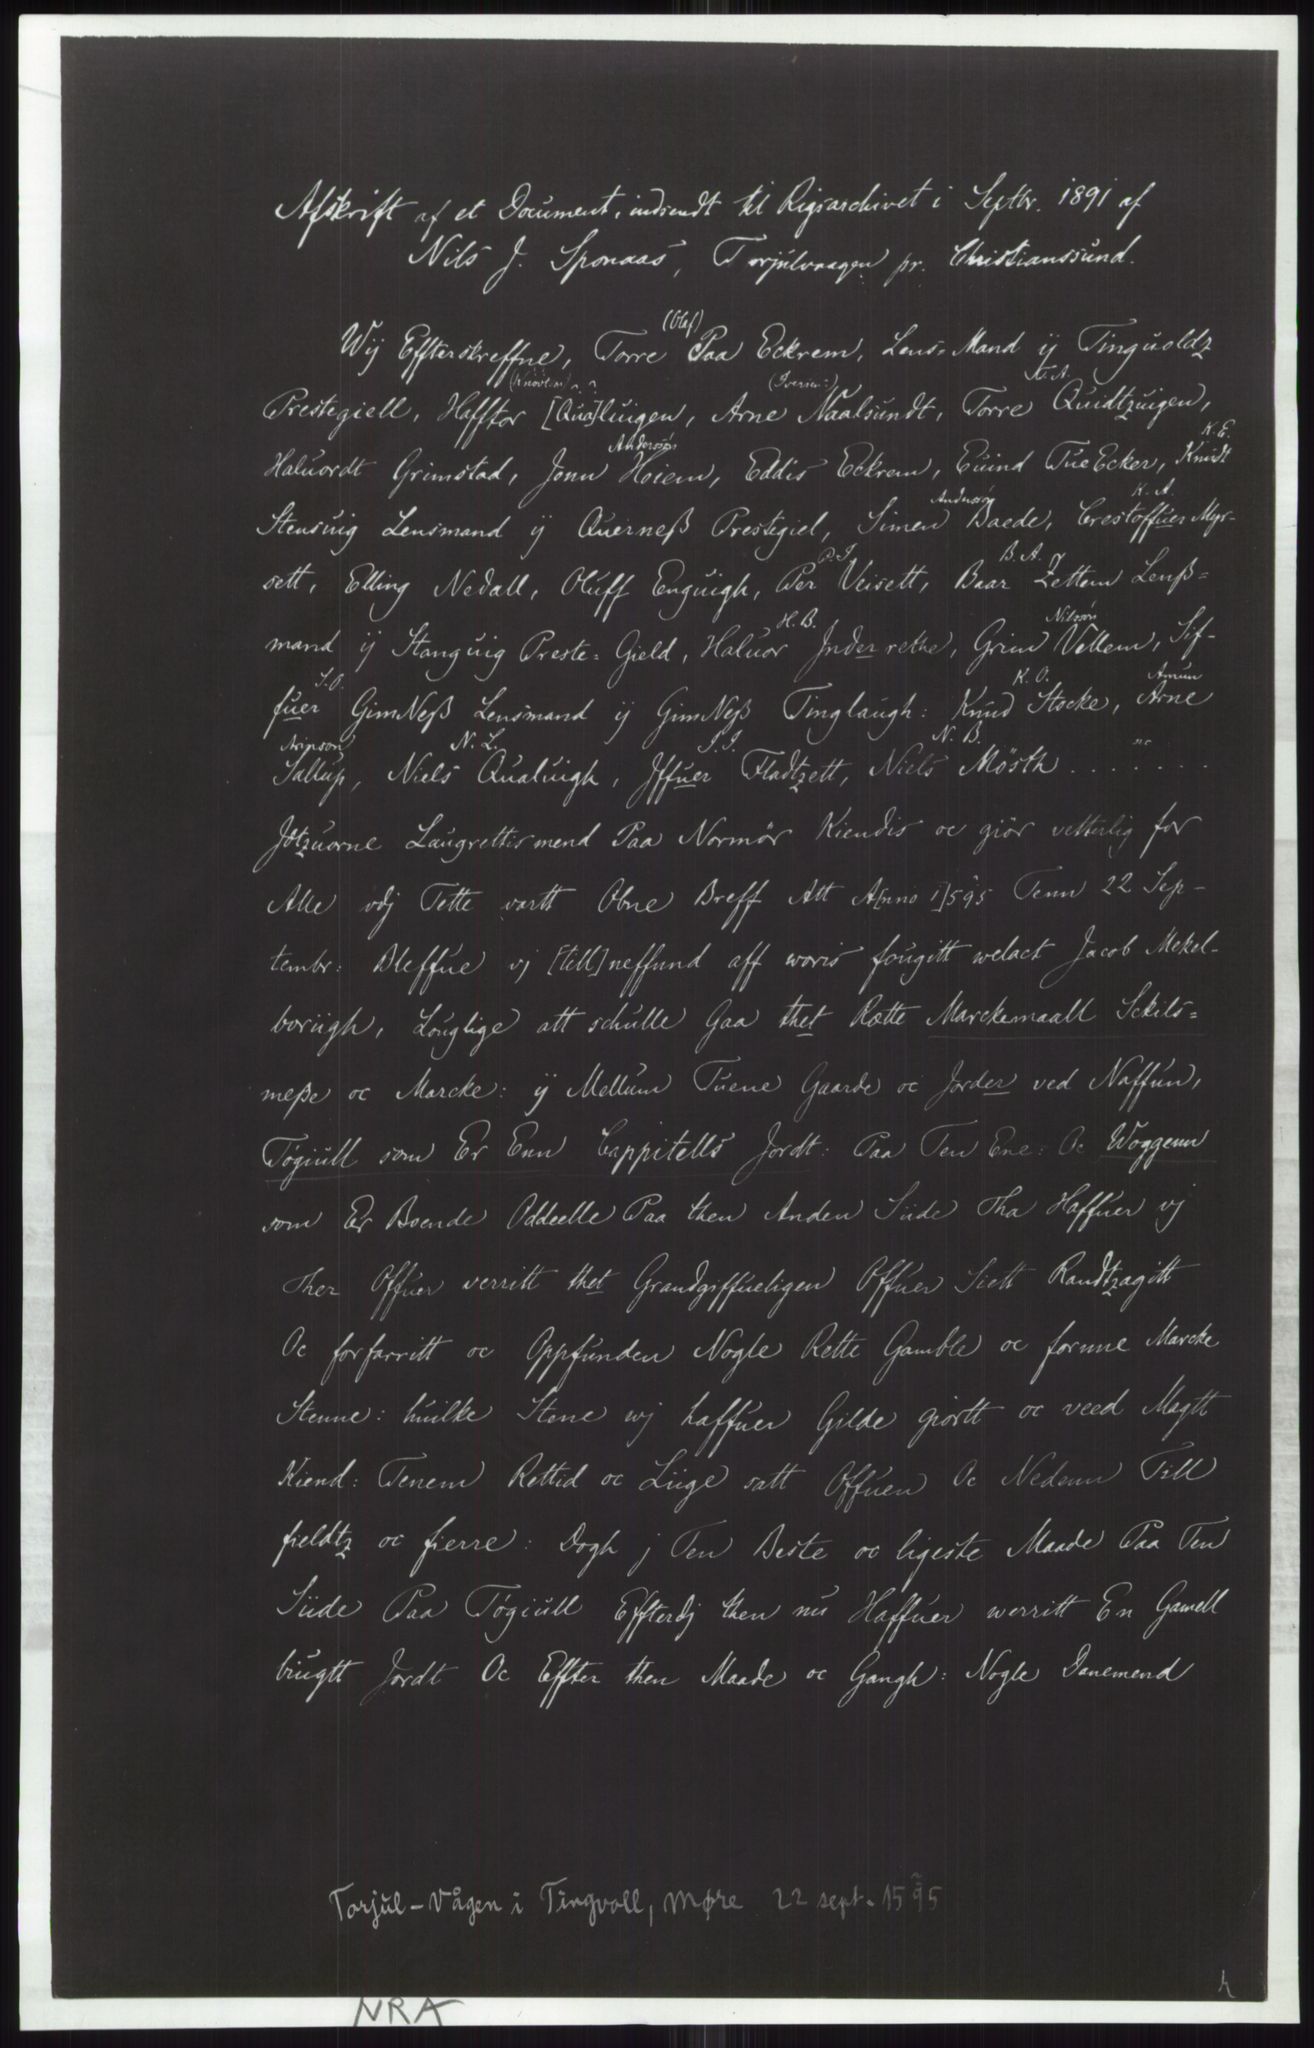 Afskrift af et Document, indsendt til Rigsarchivet i Septbr. 1891 af
Nils J. Sponaas, Torjulvaagen pr. Christianssund.
(Olaf)
Wij Effterskreffne, Torre Paa Eckrem, Lens-Mand ij Tinguoldz
(Iversen:) K. A.
Prestegiell, Hafftor [Qua]luigen, Arne Naalsundt, Torre Quidtzuigen,
Andersøn K. E.
Haluordt Grimstad, Jonn Hoiem, Eddis Eckrem, Euind TueEcker, Knudt
Anderssøn K. A.
Stensuig Lensmand ij Querneß Prestegiel, Simen Baede, Crestoffuer Myr-
P. J. B. A.
sett, Elling Nedall, Oluff Enguigh, Per Veisett, Baar Zettem Lenß=
H. B. Nilssøn
mand ij Stanguig Preste=Gield, Haluor Jnderrethe, Grim Vellem, Sif-
S. O. K. O. Amun
fuer GimNeß Lensmand ij GimNeß Tinglaugh: Knud Stocke, Arne
Arnson N. L. J. J. N. B. nc
Sallup, Niels Qualuigh, Jffuer Fladtzett, Niels Mösth . . . . . . .
Jdtzuorne Laugrettismend Paa Normör Kiendis oc giör vetterlig for
Alle vdj Tette vortt Obne Breff Att A[nno 1]595 Tenn 22 Sep-
tembr: Bleffue vj [till]neffund aff woris fougitt welact Jacob Mekel-
boriigh, Louglige att schulle Gaa thet Rette Marckemaall Sckils=
meße oc Marcke: ij Mellum Tuene Gaarde oc Jorder ved Naffun,
Togiull som Er Enn Cappitells Jordt: Paa Ten Ene: Oc Woggenn
som Er Boende Oddeelle Paa then Anden Siide Tha Haffuer vj
Ther Offuer werritt thet Grandgiffueligen Offuer Siett Randtzagitt
Oc forfarritt oc Oppfunden Nogle Rette Gamble oc fornne Marcke
Stenne: huilke Stene wj haffuer Gilde giortt oc veed Magtt
Kiend: Tenem Rettid oc Liige satt Offuen Oc Nedenn Till
fieldtz oc fierre: Dogh j Ten Beste oc ligeste Maade Paa Ten
Siide Paa Togiull Effterdj then nu Haffuer werritt En Gamell
briugtt Jordt Oc Effter then Maade oc Gangh: Nogle Danemend
Torjul-Vågen i Tingvoll, Møre 22 sept. 1595
NRA